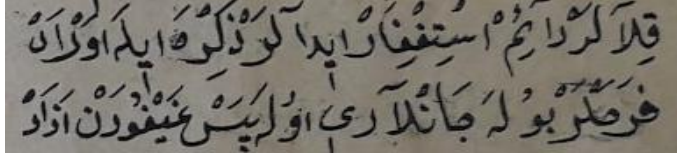 قِلاَ لَرْ دَائِمْ اِسْتِغْفِارْ ايدا لَرْ ذِكِرْهَ ايلَه اَوْرَادْ
فَرَحْلَرْ بُولَه جَانْلاَرِى اوُلَه پَسْ غَيْغُودَنْ اَزَادْ